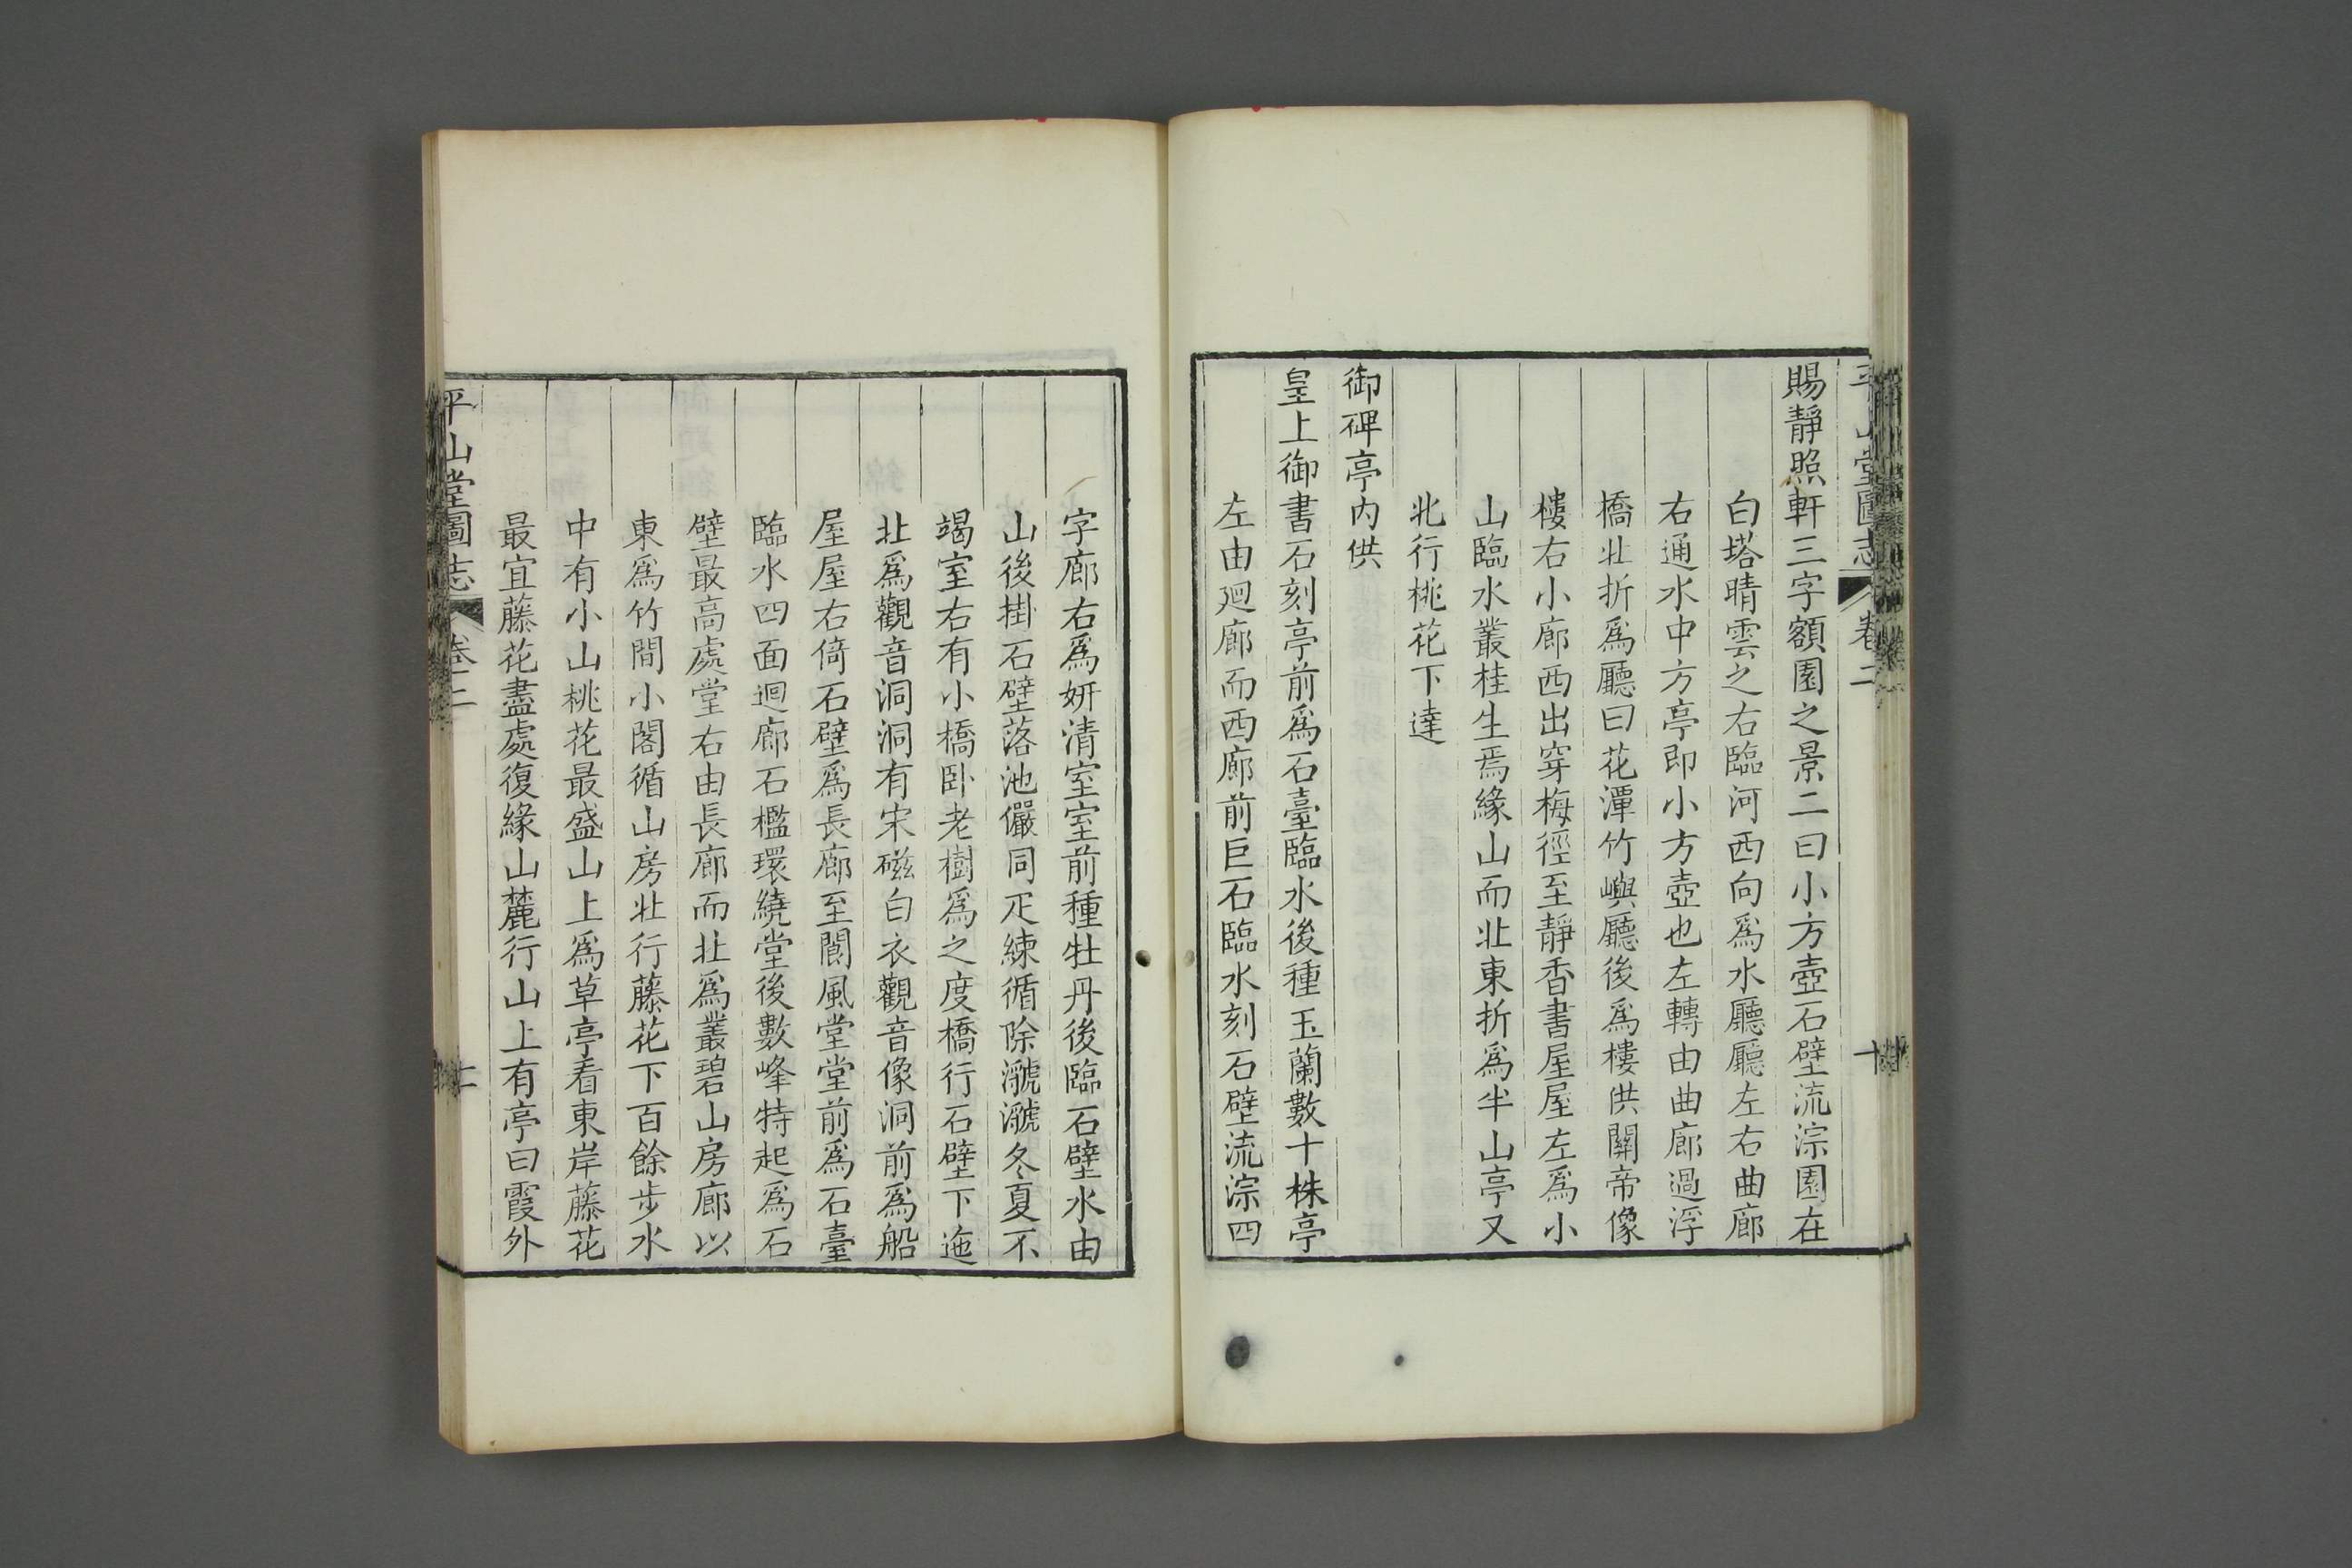 平山堂圖志 卷二 十
賜靜照軒三字額園之景二曰小方壺石壁流淙園在
白塔晴雲之右臨河西向爲水廳廳左右曲廊
右通水中方亭即小方壺也左轉由曲廊過浮
橋北折爲廳曰花潭竹嶼廳後爲樓供關帝像
樓右小廊西出穿梅徑至靜香書屋屋左爲小
山臨水叢桂生焉緣山而北東折爲半山亭又
北行桃花下達
御碑亭內供
皇上御書石刻亭前爲石臺臨水後種玉蘭數十株亭
左由廻廊而西廊前巨石臨水刻石壁流淙四
字廊右爲妍清室室前種牡丹後臨石壁水由
山後掛石壁落池儼同疋練循除㶁㶁冬夏不
竭室右有小橋卧老樹爲之度橋行石壁下迤
北爲觀音洞洞有宋磁白衣觀音像洞前爲船
屋屋右倚石壁爲長廊至閬風堂堂前爲石臺
臨水四面迴廊石檻環繞堂後數峰特起爲石
壁最高處堂右由長廊而北爲叢碧山房廊以
東爲竹間小閣循山房北行藤花下百餘步水
中有小山桃花最盛山上爲草亭看東岸藤花
最宜藤花盡處復緣山麓行山上有亭曰霞外
平山堂圖志 卷二